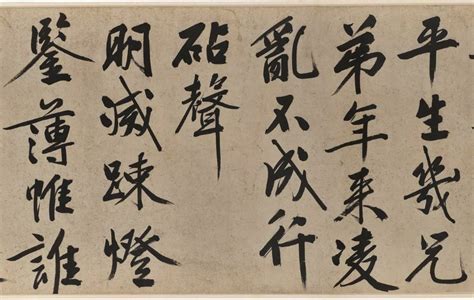 平生幾兄
弟年来凌
亂不成行
砧聲
明滅踈燈
鑒薄帷誰